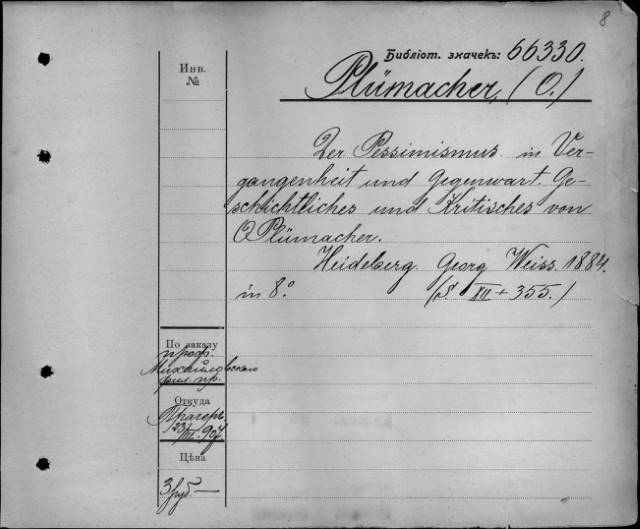 8
Библiот. значекъ: 66330.
Инв.
№
Plümacher, (O.)
Der Pessimismus in Ver-
gangenheit und Gegenwart. Ge-
schichtliches und Kritisches von
O Plümacher.
Heidelberg. Georg Weiss. 1884.
in 8°. (S. XII + 355.)
По заказу
проф.
Михайловскаго
Откуда
Прагеръ
23/III 907.
Цѣна
3 руб. —